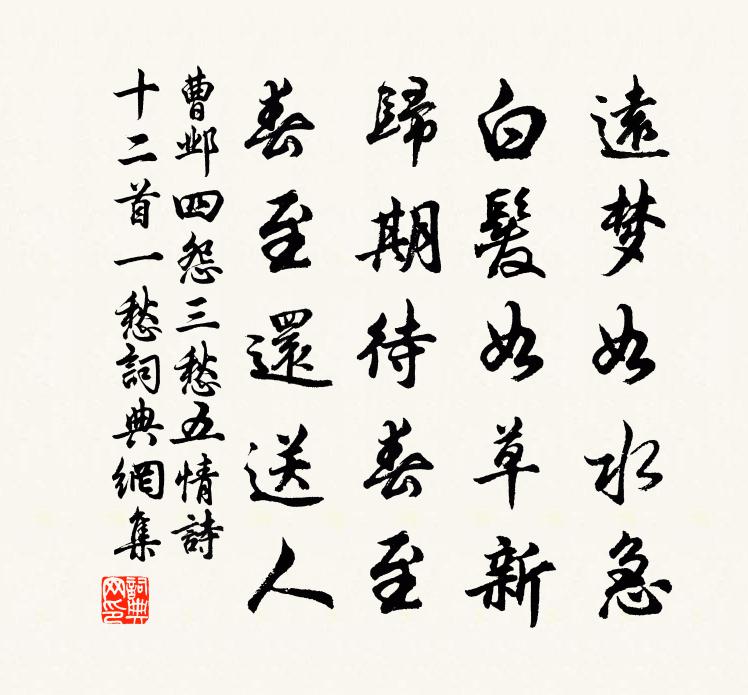 遠梦如水急
白髮如草新
歸期待春至
春至還送人
曹邺四怨三愁五情詩
十二首一愁詞典網集
詞典网印